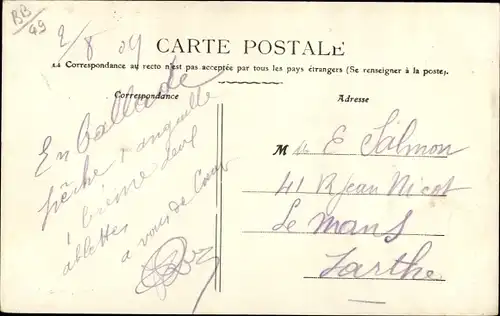 BB
49
2/8 09
CARTE POSTALE
La Correspondance au recto n'est pas acceptée par tous les pays étrangers (Se renseigner à la poste).
Correspondance
En Ballade
pêche 1 anguille
1 brème deux
ablettes
a vous de Cœur
Adresse
Mlle E Salmon
41 R Jean Nicot
Le Mans
Sarthe